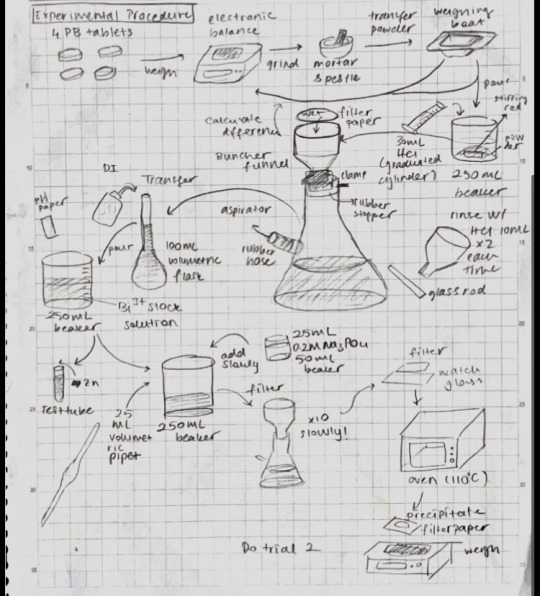 Experimental Procedure
4 PB tablets
weigh
electronic
balance
grind
mortar
& pestle
transfer
powder
weigning
boat
pour
stirring
rod
pow
der
250 mL
beaker
30mL
HCl
(graduated
cylinder)
calculate
difference
wet
filter
paper
Buncher
funnel
clamp
rubber
stopper
aspirator
rubber
hose
rinse w/
HCl 10mL
x2
each
time
glass rod
DI
Transfer
100mL
volumetric
flask
pour
pH
paper
250mL
beaker
Bi3+ stock
solution
Zn
test tube
25
mL
volumet
ric
pipet
250mL
beaker
add
slowly
25mL
0.2M Na3PO4
50mL
beaker
filter
x10
slowly!
filter
watch
glass
oven (110°C)
precipitate
filter paper
weigh
Do trial 2